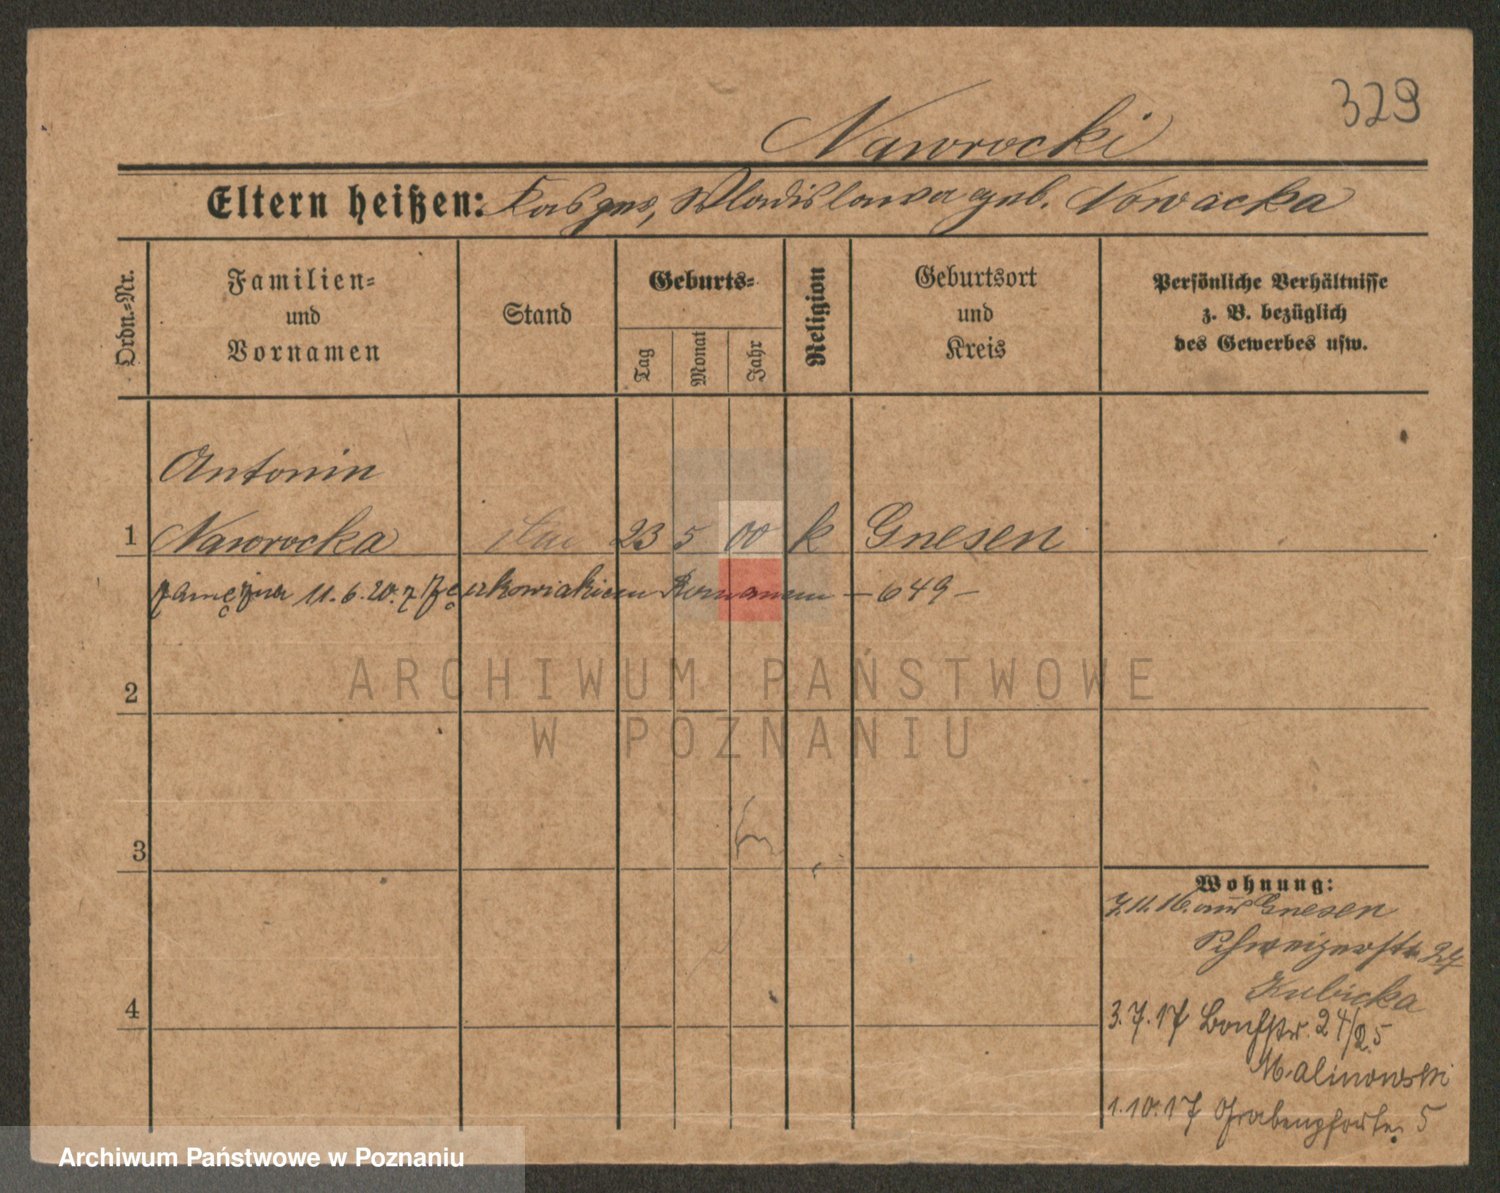 329
Nawrocki
Eltern heißen: Wladislawa geb. Nowacka
Ordn.-Nr.
Familien-
und
Vornamen
Stand
Geburts-
Tag
Monat
Jahr
Religion
Geburtsort
und
Kreis
Persönliche Verhältnisse
z. B. bezüglich
des Gewerbes usw.
Antonin
1 Nawrocka 23 5 00 k Gnesen
zamężna 11.6.20. z Romanem – 649 –
2
3
4
Wohnung:
7.11.16. aus Gnesen
Schweizerstr. 24
Kubicka
3.7.17 24/25
Malinowski
1.10.17 Grabenpforte 5
ARCHIWUM PAŃSTWOWE
W POZNANIU
Archiwum Państwowe w Poznaniu